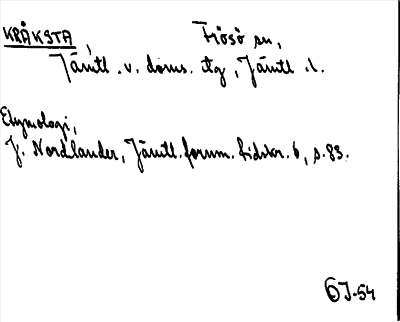 KRÅKSTA, Frösö sn,
Jämtl. v. doms. tlg, Jämtl. l.
Etymologi,
J. Nordlander, Jämtl. fornm. tidskr. 6, s. 83.
ÖJ-54